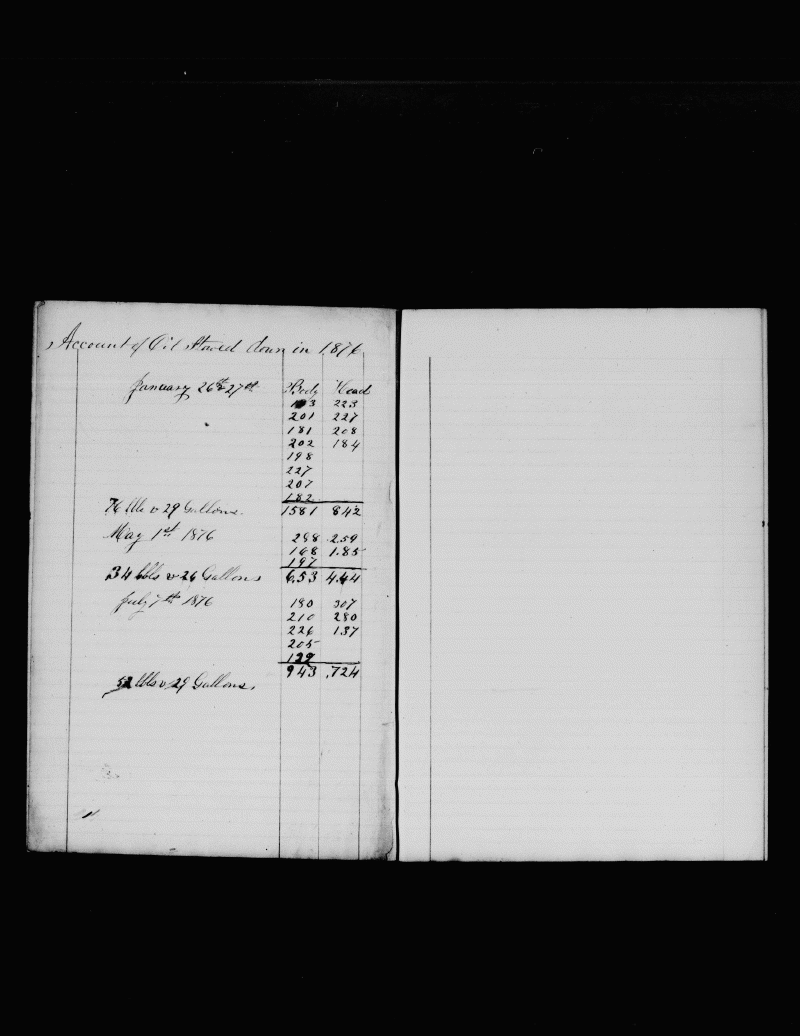 Account of Oil Stowed down in 1876
January 26th & 27th Body Head
183 223
201 227
181 208
202 184
198
227
207
182
76 bbls & 29 Gallons. 1581 842
May 1st 1876
288 259
168 1.85
197
34 bbls & 26 Gallons 6.53 4.44
July 7th 1876 180 307
210 280
226 137
205
122
943 .724
52 bbls & 29 Gallons.